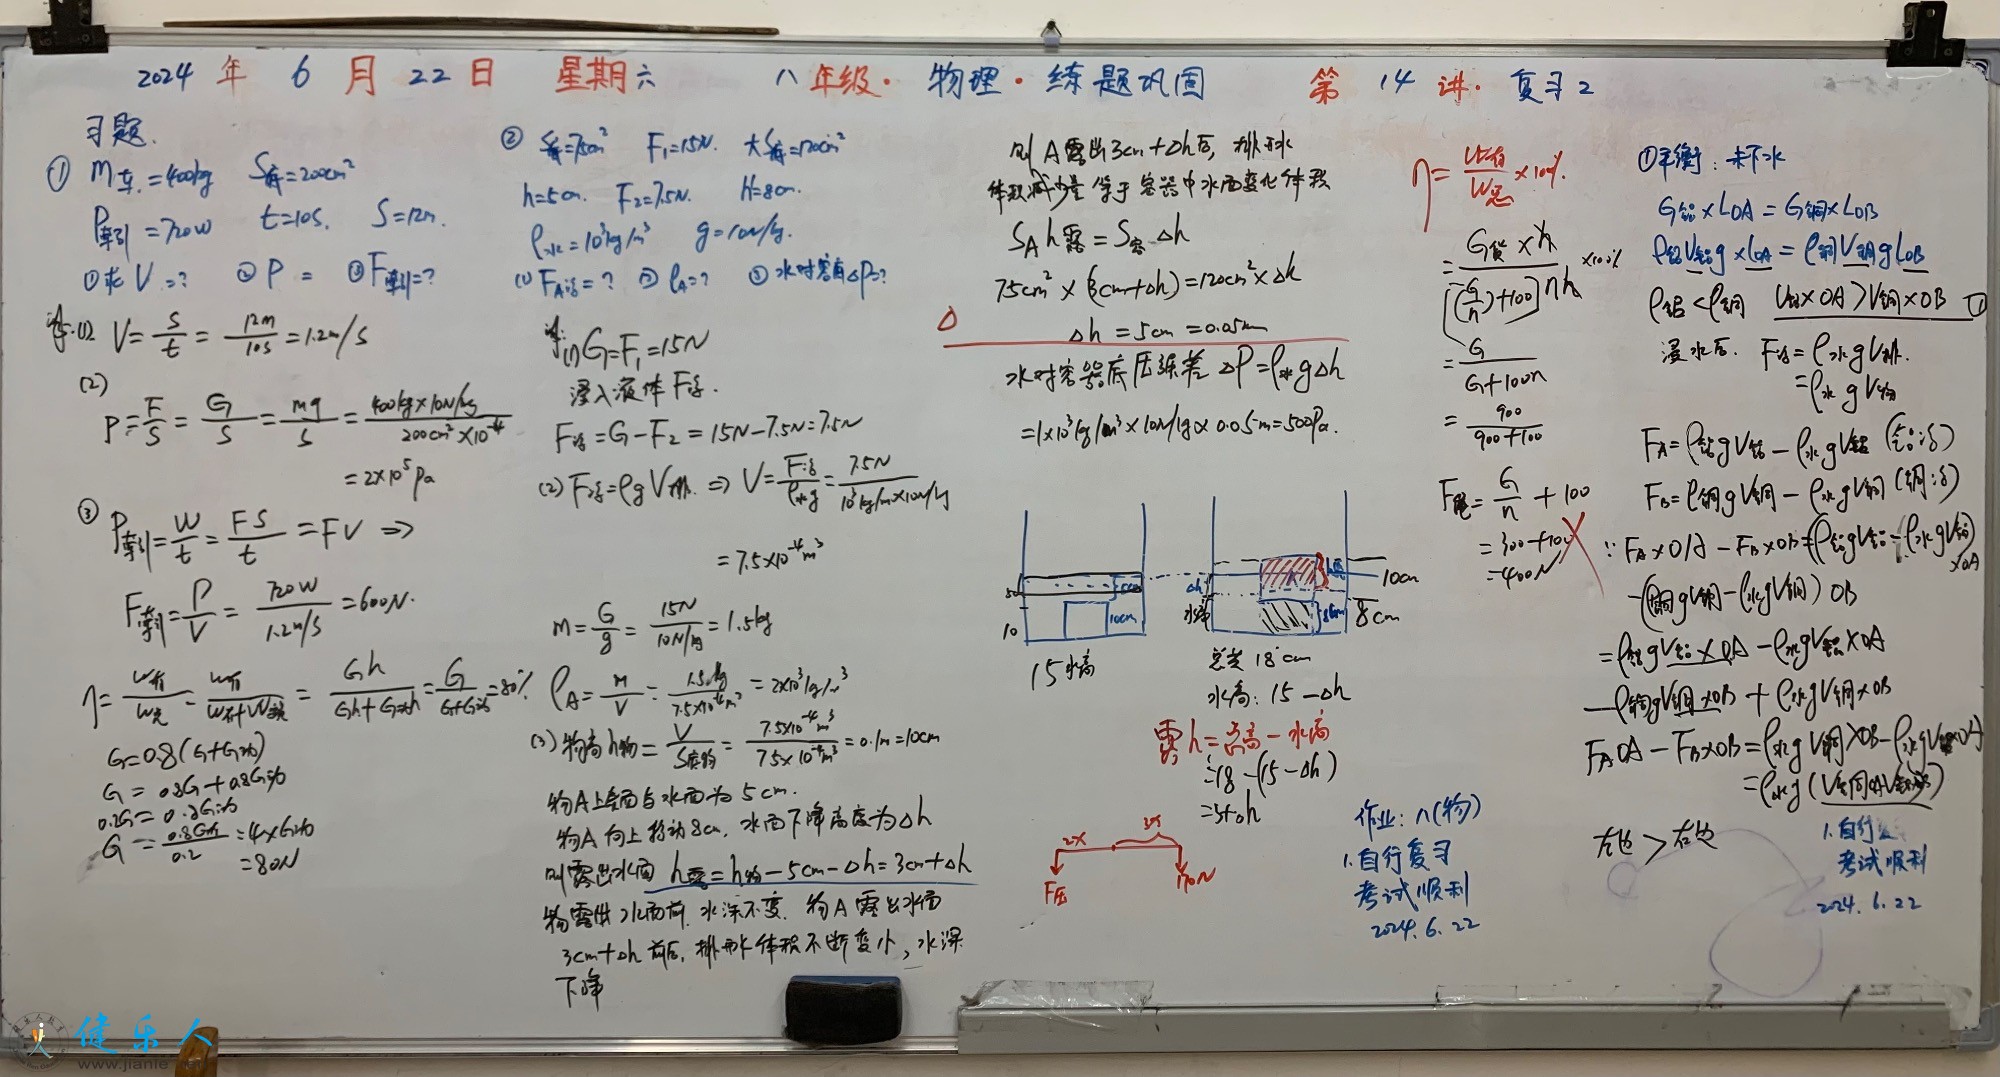 2024 年 6 月 22 日 星期六 八年级·物理·练题巩固 第 14 讲·复习2
习题.
① m车=400kg S车=200cm²
P牵引=720W t=10s. S=12m.
①求V=? ②P= ③F牵引=?
(1) V=S/t=12m/10s=1.2m/s
(2)
P=F/S=G/S=mg/S=400kg×10N/kg/200cm²×10⁻⁴
=2×10⁵Pa
③ P牵引=W/t=FS/t=FV ⇒
F牵引=P/V=720W/1.2m/s=600N.
η=W有/W总=W有/W有+W额=Gh/Gh+G动h=G/G+G动=80%
G=0.8(G+G动)
G=0.8G+0.8G动
0.2G=0.8G动
G=0.8G动/0.2=4×G动
=80N
② F₁=15N.
h=5cm. F₂=7.5N. H=8cm.
ρ水=10³kg/m³ g=10N/kg.
(1) FA浮=? ② ρA=? ③ 水对容有Δp=?
(1) G=F₁=15N
浸入液体F浮.
F浮=G-F₂=15N-7.5N=7.5N
(2) F浮=ρgV排 ⇒ V=F浮/ρ水g=7.5N/10³kg/m³×10N/kg
=7.5×10⁻⁴m³
m=G/g=15N/10N/kg=1.5kg
ρA=m/V=1.5kg/7.5×10⁻⁴m³=2×10³kg/m³
(3) 物高h物=V/S底物=7.5×10⁻⁴m³/75×10⁻⁴m²=0.1m=10cm
物A上表面与水面为5cm.
物A向上移动8cm, 水面下降高度为Δh
则露出水面 h露=h物-5cm-Δh=3cm+Δh
物露出水面前, 水深不变. 物A露出水面
3cm+Δh 前后, 排开水体积不断变小, 水深
下降
则A露出3cm+Δh后, 排开水
体积减少量等于容器中水面变化体积
SA h露=S容Δh
75cm²×(3cm+Δh)=120cm²×Δh
Δh=5cm=0.05m
水对容器底压强差 ΔP=ρ水gΔh
=1×10³kg/m³×10N/kg×0.05m=500Pa.
5cm
10cm
10
15水高
Δh
10cm
8cm
8cm
总共18cm
水高: 15-Δh
露h=总高-水高
=18-(15-Δh)
=3+Δh
2X
3X
F压
170N
作业: 八(物)
1.自行复习
考试顺利
2024.6.22
η=W有/W总×100%
=G货×h/[(G/n)+100]nh×100%
=G/G+100n
=900/900+100
F=G/n+100
=300+100
=400N
①平衡: 未下水
G铝×LOA=G铜×LOB
ρ铝V铝g×LOA=ρ铜V铜gLOB
ρ铝<ρ铜 V铝×OA>V铜×OB ①
浸水后. F浮=ρ水gV排.
=ρ水gV物
FA=ρ铝gV铝-ρ水gV铝 (铝浮)
FB=ρ铜gV铜-ρ水gV铜 (铜浮)
∵FA×OA-FB×OB=(ρ铝gV铝-ρ水gV铝)×OA
-(ρ铜gV铜-ρ水gV铜)OB
=ρ铝gV铝×OA-ρ水gV铝×OA
-ρ铜gV铜×OB+ρ水gV铜×OB
FAOA-FB×OB=ρ水gV铜×OB-ρ水gV铝×OA
左边>右边
考试顺利
2024.6.22
健乐人